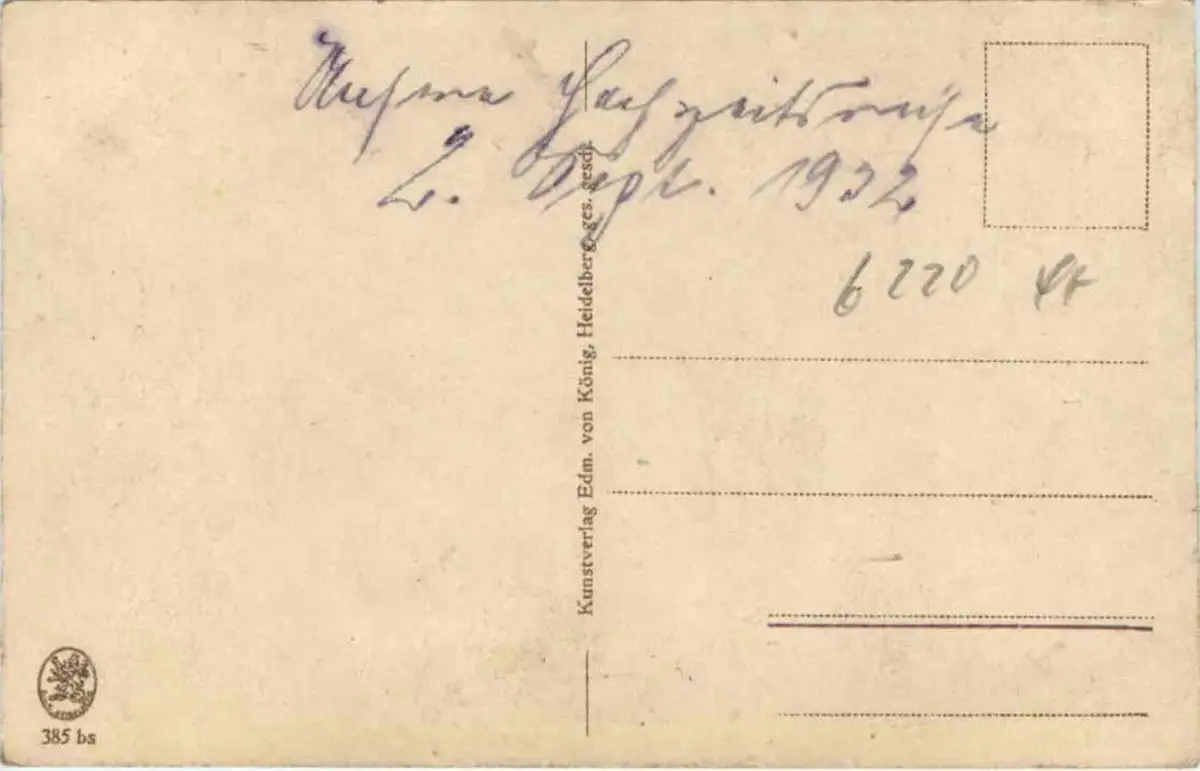 Unsere Hochzeitsreise
2. Sept. 1932
6220
Kunstverlag Edm. von König, Heidelberg, ges. gesch.
385 bs